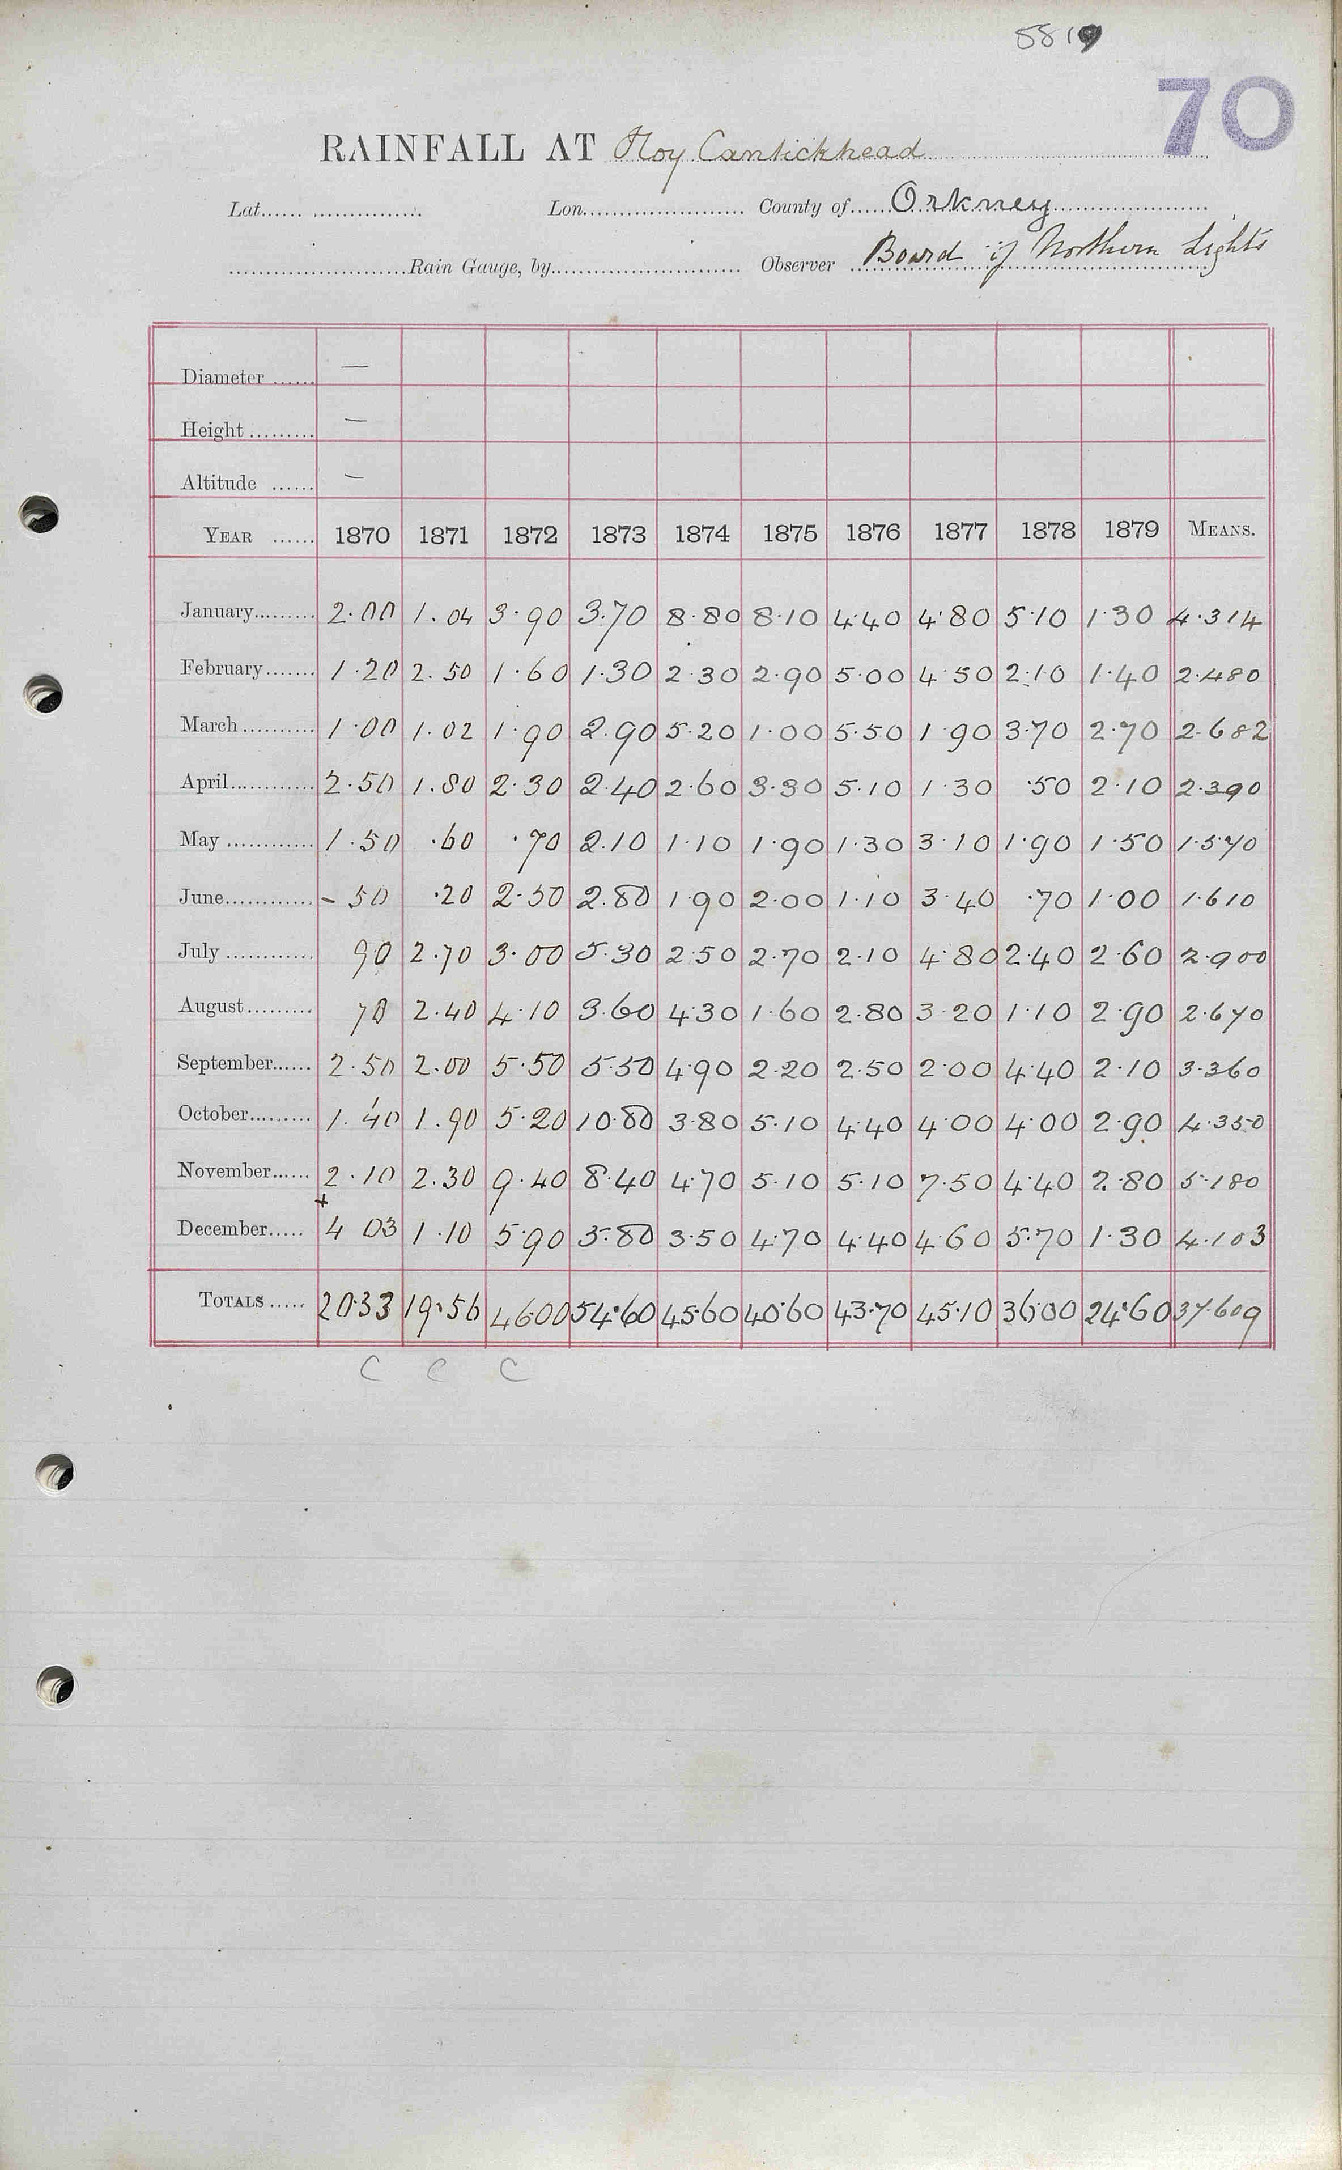 5819
70
RAINFALL AT Hoy Cantickhead
Lat. Lon. County of Orkney
Rain Gauge, by Observer Board of Northern Lights
Diameter —
Height —
Altitude —
YEAR 1870 1871 1872 1873 1874 1875 1876 1877 1878 1879 MEANS.
January 2.00 1.04 3.90 3.70 8.80 8.10 4.40 4.80 5.10 1.30 4.314
February 1.20 2.50 1.60 1.30 2.30 2.90 5.00 4.50 2.10 1.40 2.480
March 1.00 1.02 1.90 2.90 5.20 1.00 5.50 1.90 3.70 2.70 2.682
April 2.50 1.80 2.30 2.40 2.60 3.30 5.10 1.30 .50 2.10 2.390
May 1.50 .60 .70 2.10 1.10 1.90 1.30 3.10 1.90 1.50 1.570
June - 50 .20 2.50 2.80 1.90 2.00 1.10 3.40 .70 1.00 1.610
July 90 2.70 3.00 5.30 2.50 2.70 2.10 4.80 2.40 2.60 2.900
August 70 2.40 4.10 3.60 4.30 1.60 2.80 3.20 1.10 2.90 2.670
September 2.50 2.00 5.50 5.50 4.90 2.20 2.50 2.00 4.40 2.10 3.360
October 1.40 1.90 5.20 10.80 3.80 5.10 4.40 4.00 4.00 2.90 4.350
November 2.10 2.30 9.40 8.40 4.70 5.10 5.10 7.50 4.40 2.80 5.180
+
December 4 03 1.10 5.90 5.80 3.50 4.70 4.40 4.60 5.70 1.30 4.103
TOTALS 20.33 19.56 46.00 54.60 45.60 40.60 43.70 45.10 36.00 24.60 37.609
C C C